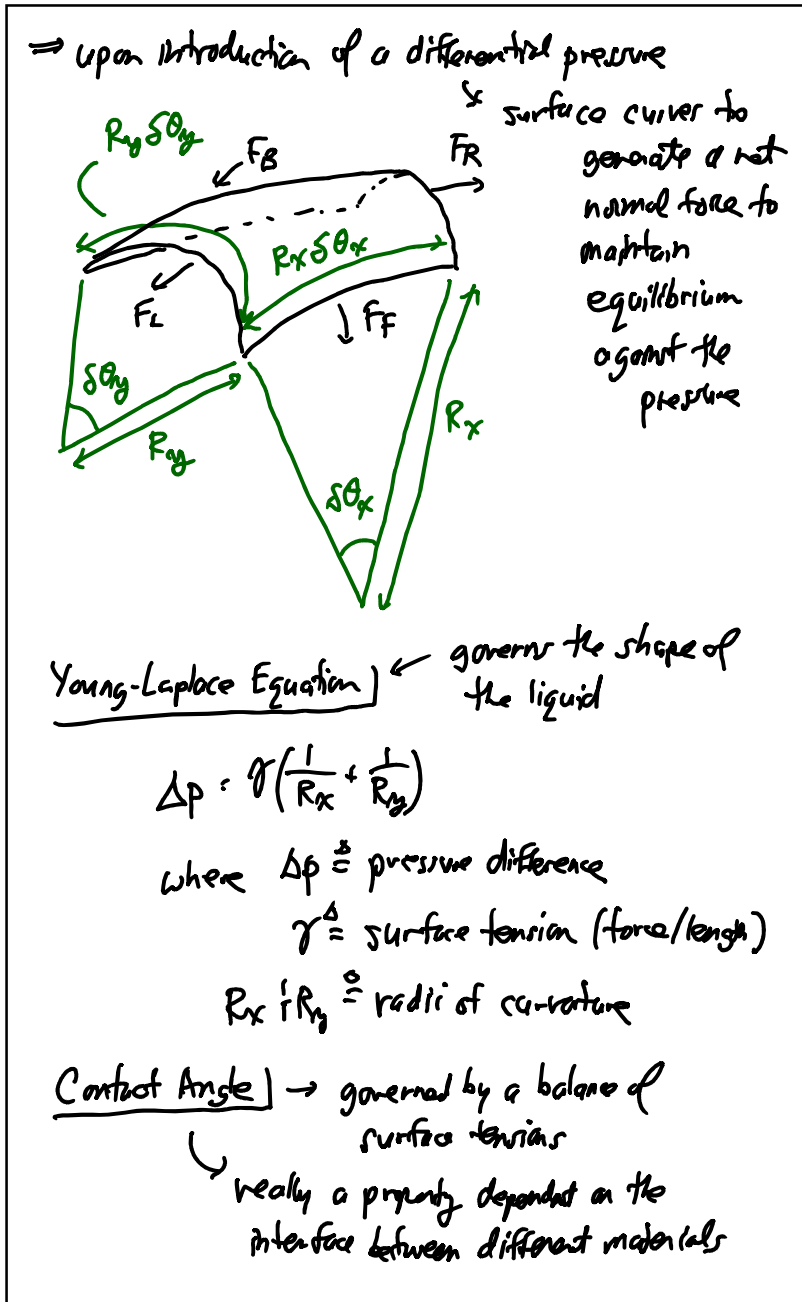 ⇒ upon introduction of a differential pressure
↘ surface curves to
generate a net
normal force to
maintain
equilibrium
against the
pressure
R_y δθ_y
F_B
F_R
R_x δθ_x
F_L
F_F
δθ_y
R_y
R_x
δθ_x
Young-Laplace Equation ← governs the shape of
the liquid
Δp = γ(1/R_x + 1/R_y)
where Δp ≜ pressure difference
γ ≜ surface tension (force/length)
R_x & R_y ≜ radii of curvature
Contact Angle → governed by a balance of
surface tensions
↘ really a property dependent on the
interface between different materials